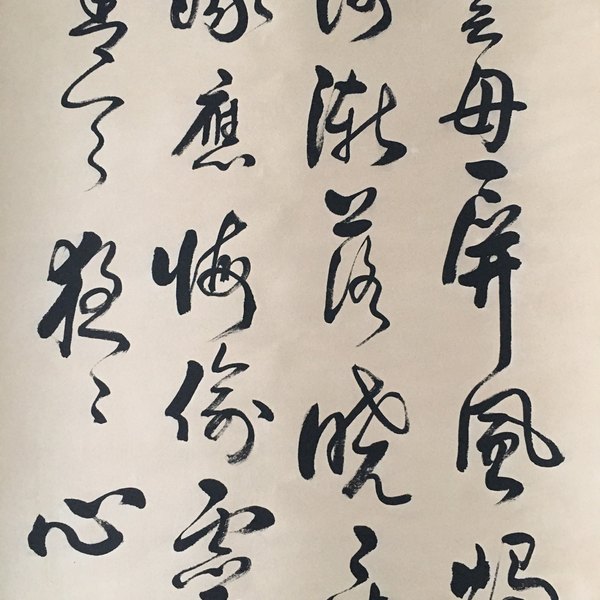 雲母屏風燭
河漸落曉星
娥應悔偷靈
青天夜々心